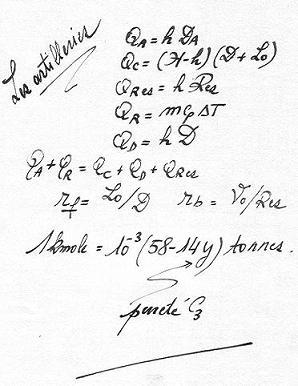 Les artilleries
QA = h DA
QC = (H-h)(D+L0)
QRes = h Res
QR = m cp ΔT
QD = h D
QA + QR = QC + QD + QRes
rf = L0/D rb = V0/Res
1 kmole = 10^-3 (58-14y) tonnes.
pureté C3